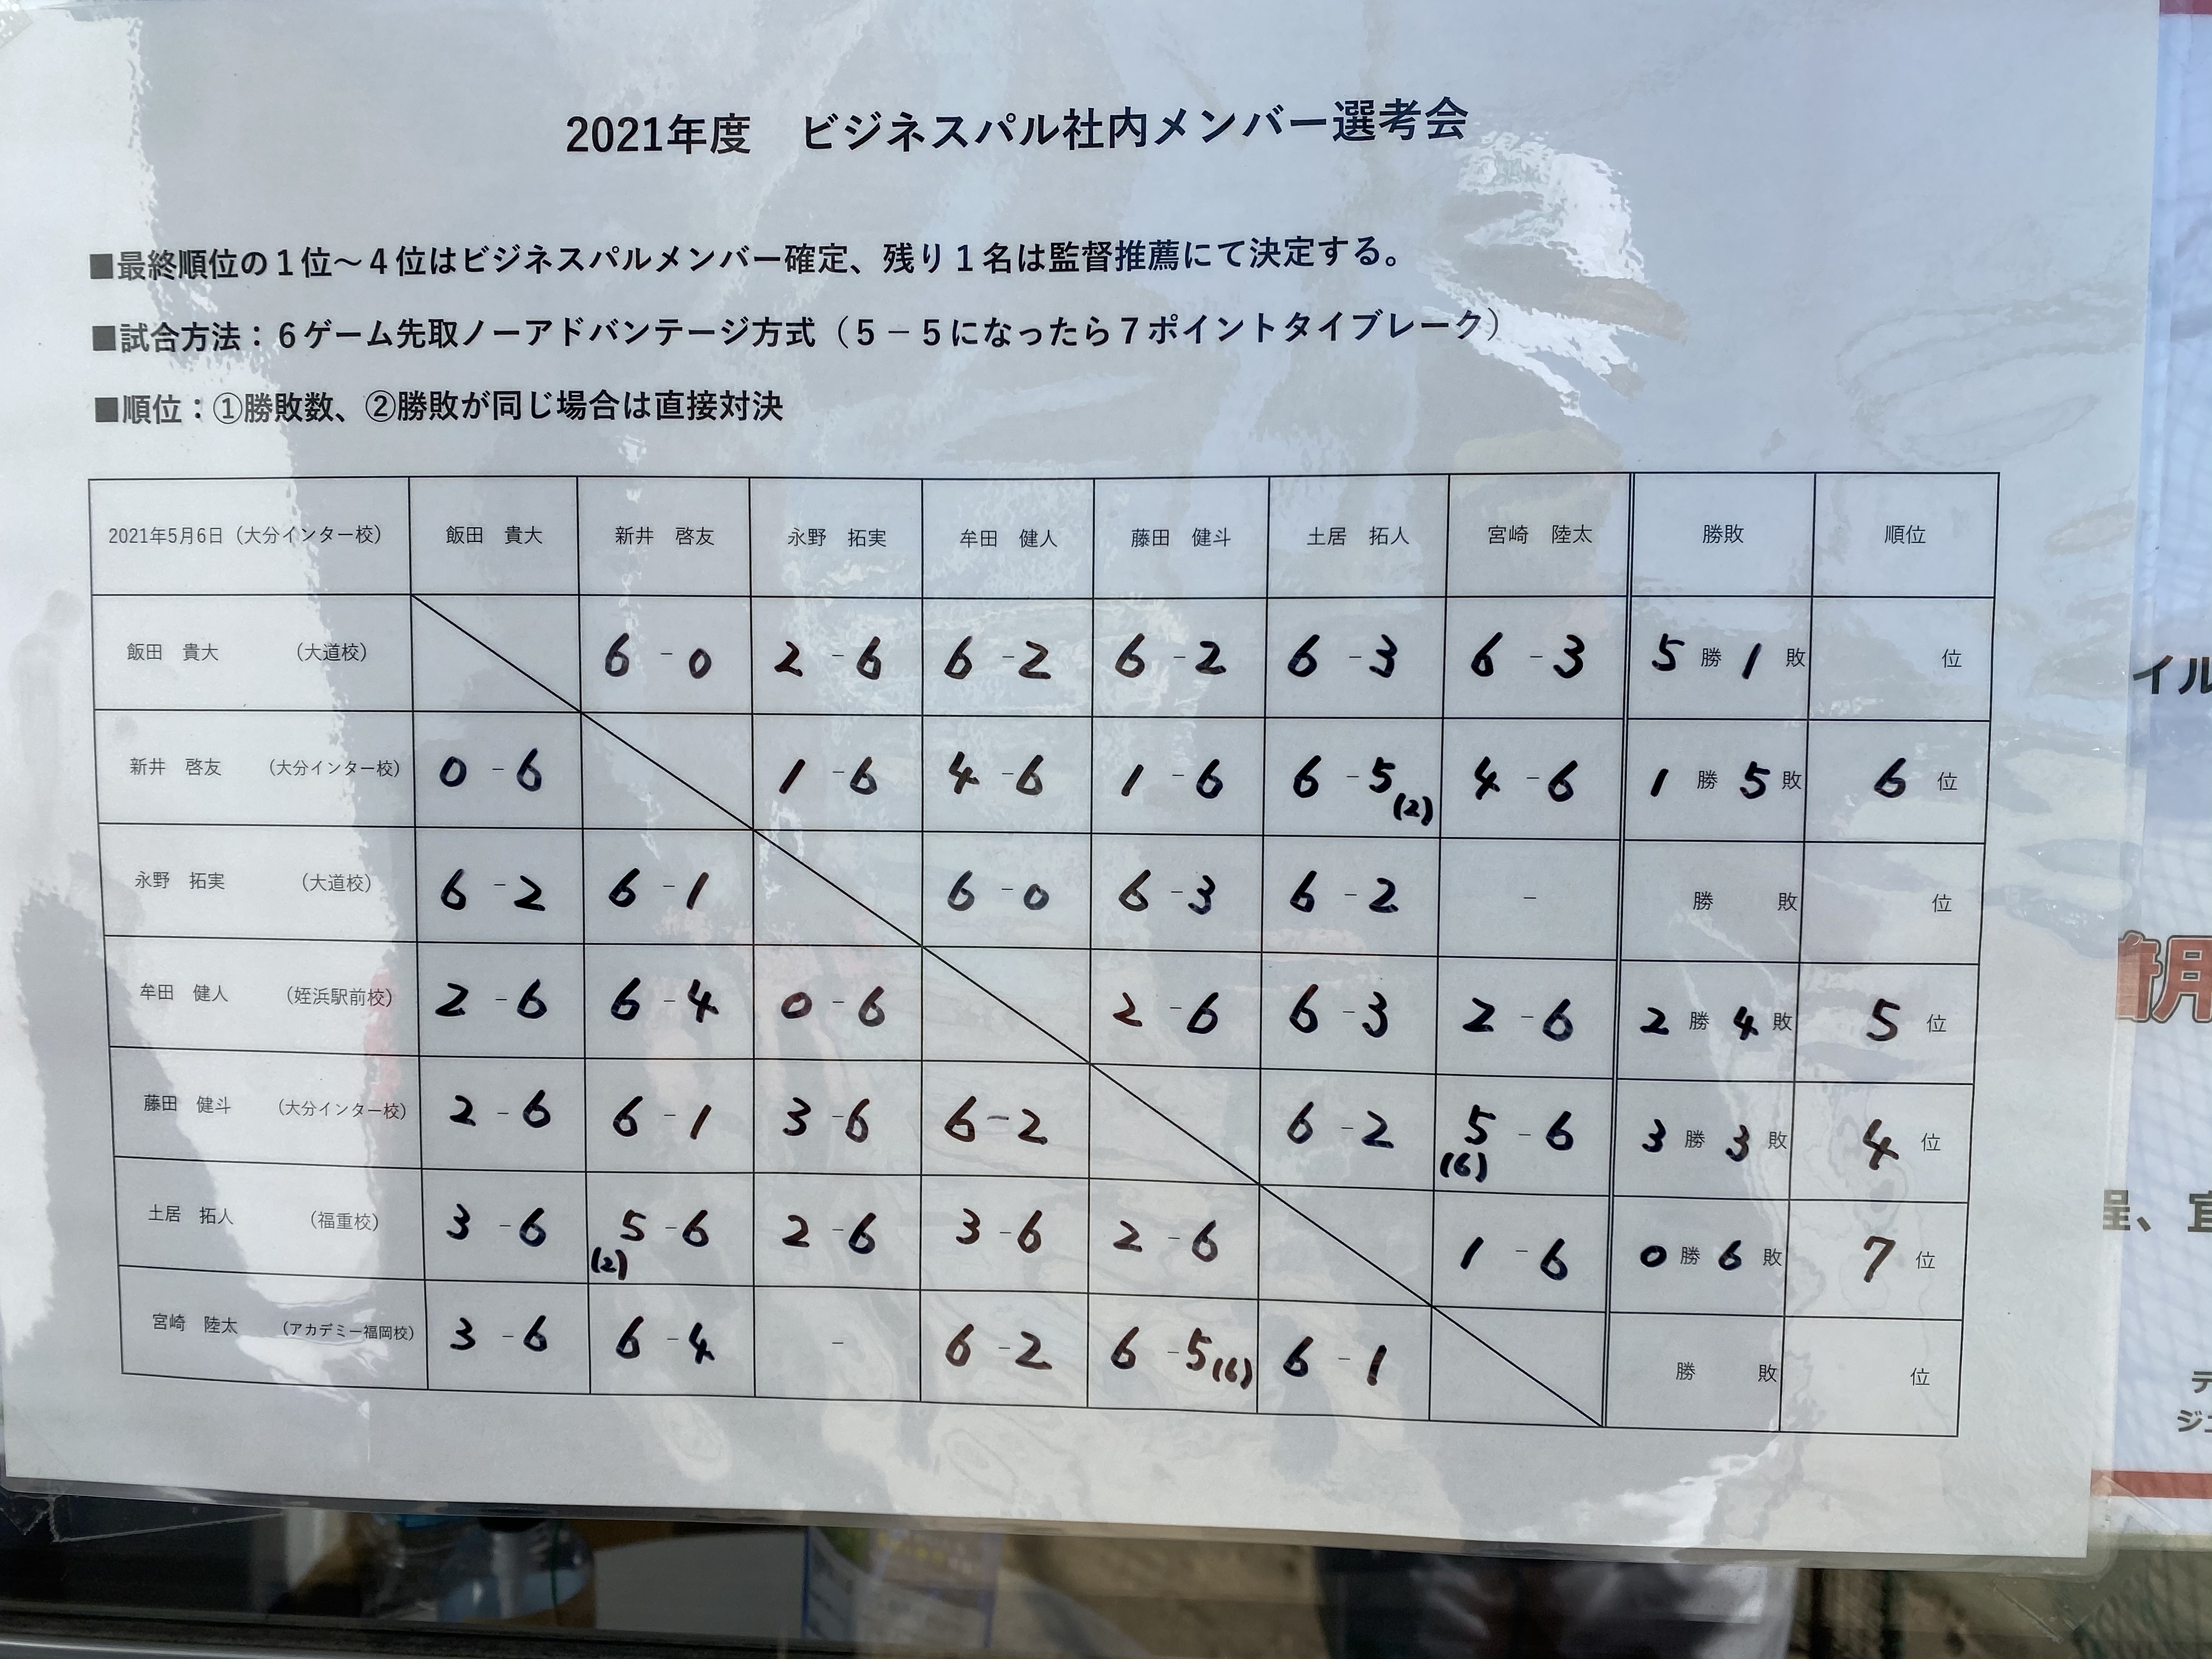 2021年度　ビジネスパル社内メンバー選考会
■最終順位の1位～4位はビジネスパルメンバー確定、残り1名は監督推薦にて決定する。
■試合方法：6ゲーム先取ノーアドバンテージ方式（5－5になったら7ポイントタイブレーク）
■順位：①勝敗数、②勝敗が同じ場合は直接対決
2021年5月6日（大分インター校） 飯田　貴大 新井　啓友 永野　拓実 牟田　健人 藤田　健斗 土居　拓人 宮崎　陸太 勝敗 順位
飯田　貴大 （大道校） 6 - 0 2 - 6 6 - 2 6 - 2 6 - 3 6 - 3 5 勝 1 敗 位
新井　啓友 （大分インター校） 0 - 6 1 - 6 4 - 6 1 - 6 6 - 5 (2) 4 - 6 1 勝 5 敗 6 位
永野　拓実 （大道校） 6 - 2 6 - 1 6 - 0 6 - 3 6 - 2 - 勝 敗 位
牟田　健人 （姪浜駅前校） 2 - 6 6 - 4 0 - 6 2 - 6 6 - 3 2 - 6 2 勝 4 敗 5 位
藤田　健斗 （大分インター校） 2 - 6 6 - 1 3 - 6 6 - 2 6 - 2 5 - 6 (6) 3 勝 3 敗 4 位
土居　拓人 （福重校） 3 - 6 5 - 6 (2) 2 - 6 3 - 6 2 - 6 1 - 6 0 勝 6 敗 7 位
宮崎　陸太 （アカデミー福岡校） 3 - 6 6 - 4 - 6 - 2 6 - 5 (6) 6 - 1 勝 敗 位
イル